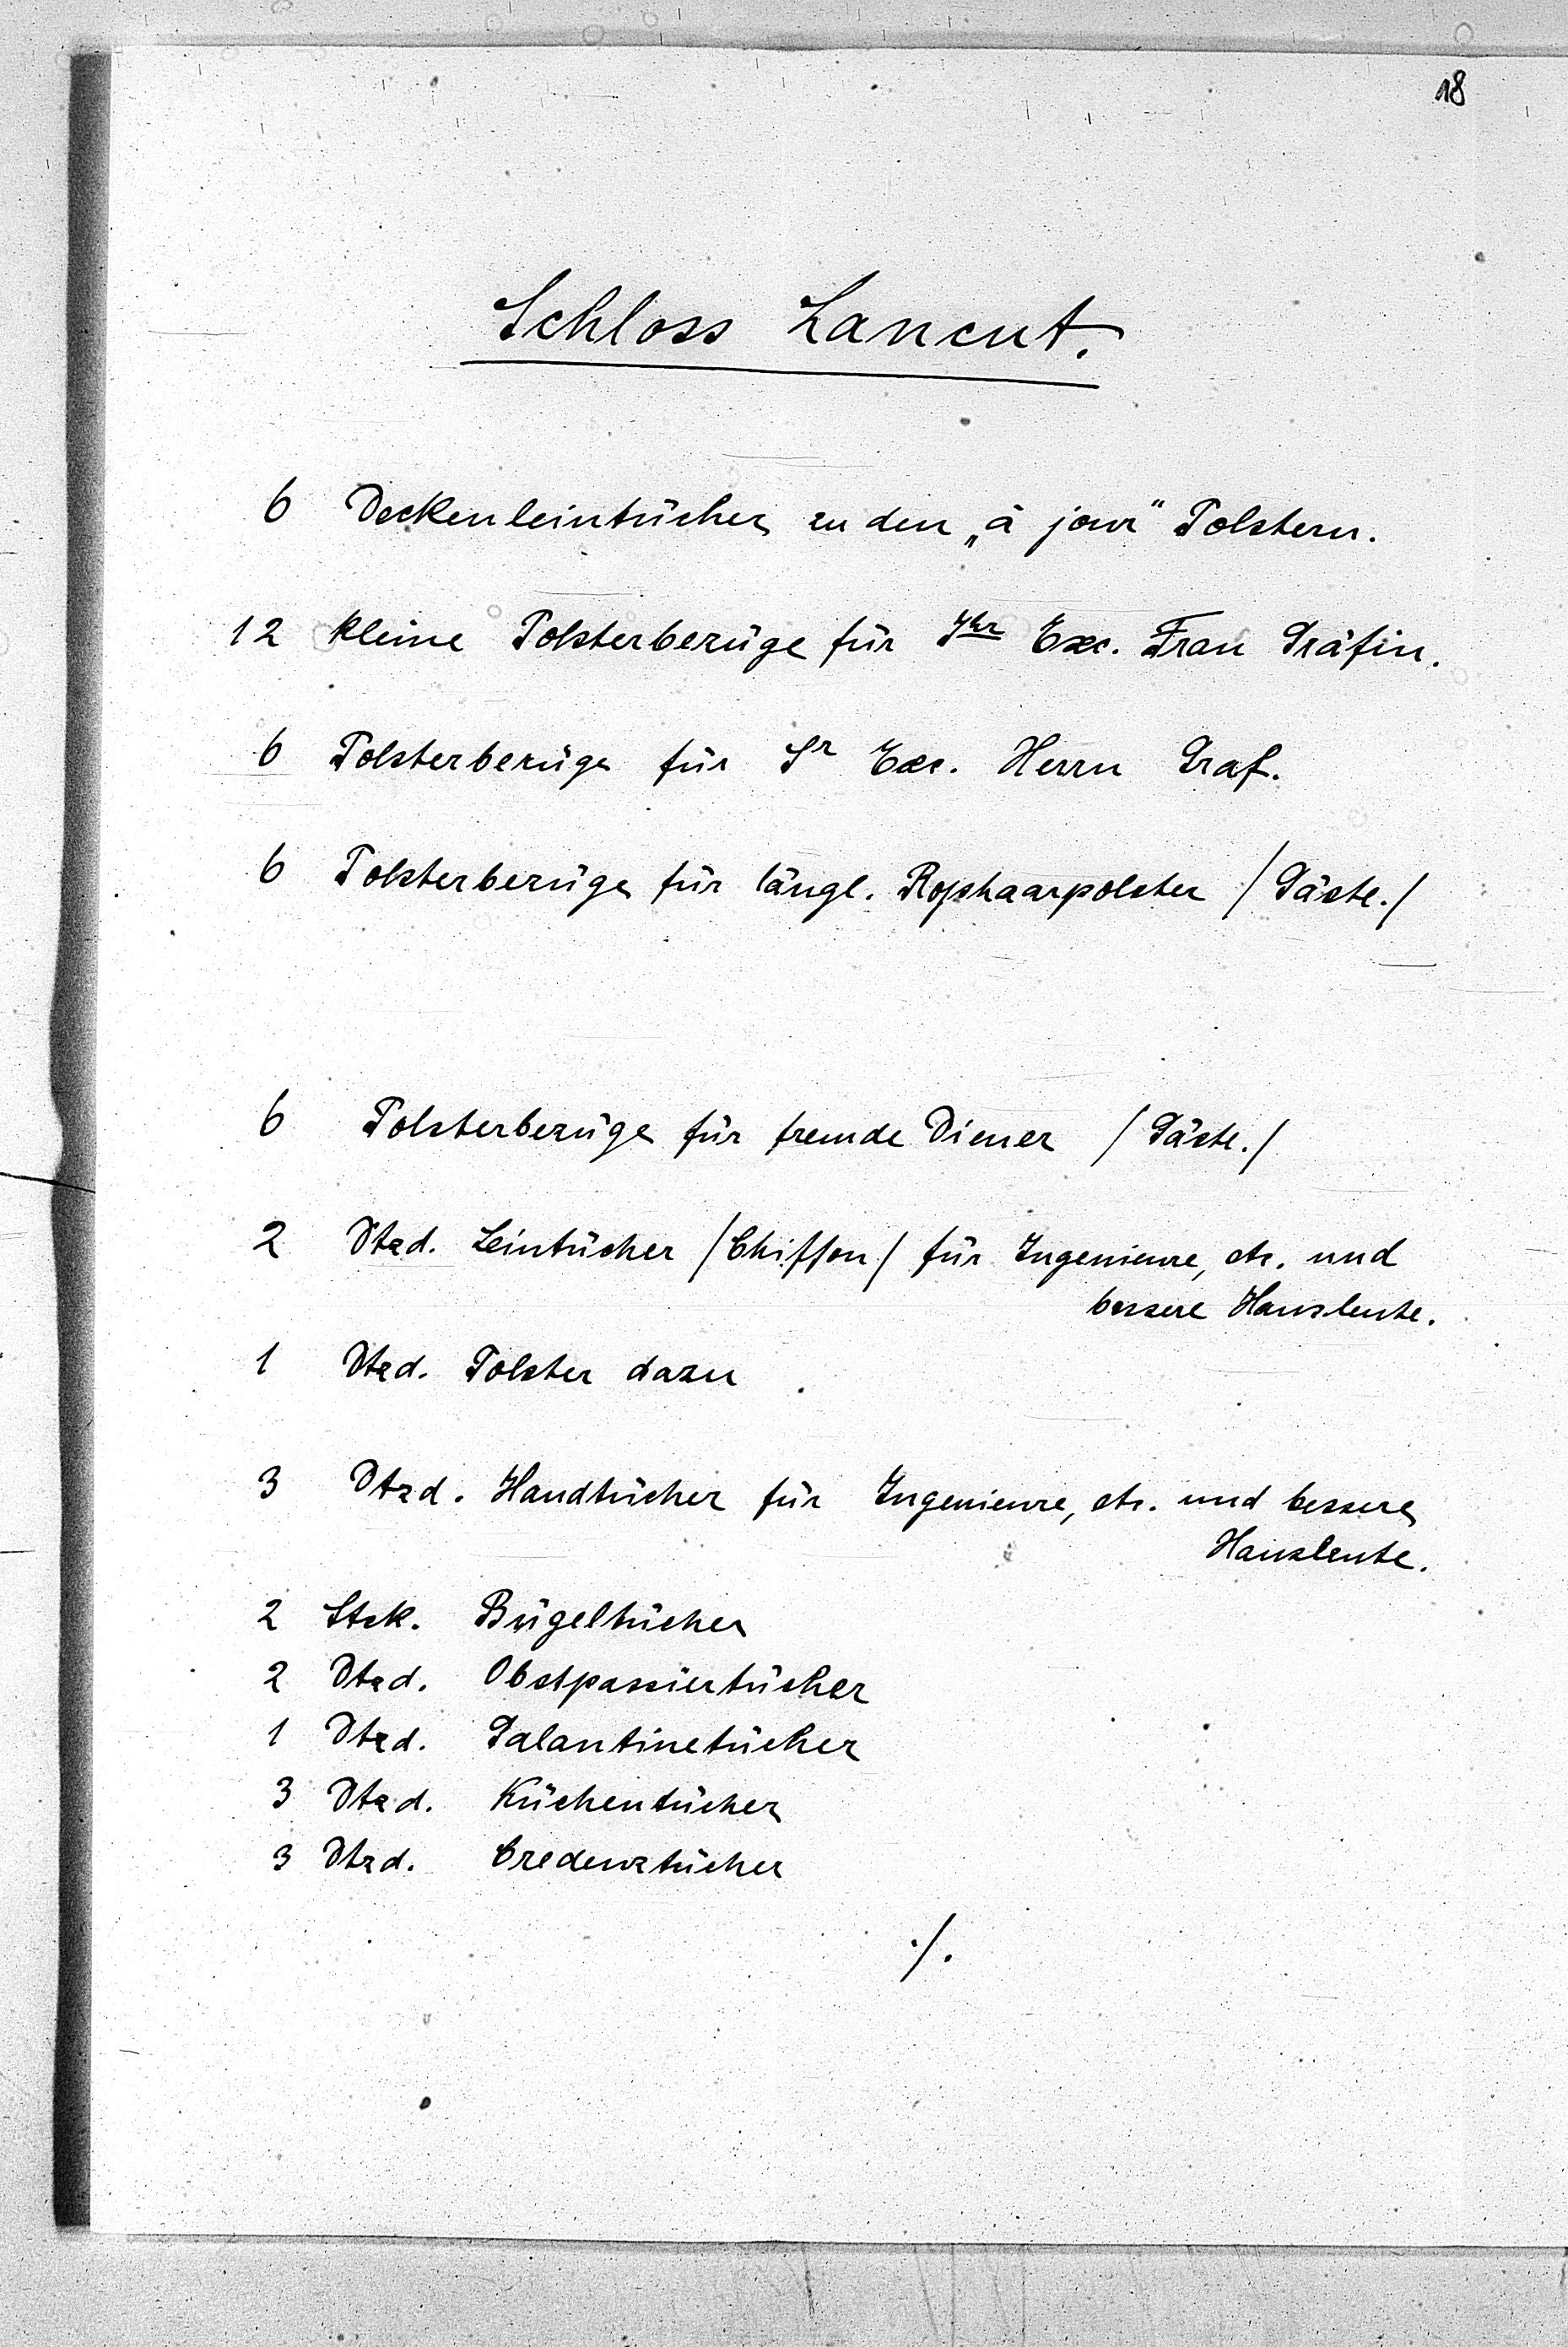 18
Schloss Lancut.
6 Deckenleintücher zu den „à jour" Polstern.
12 kleine Polsterbezüge für Ihr Exc. Frau Gräfin.
6 Polsterbezüge für Sr Exc. Herrn Graf.
6 Polsterbezüge für längl. Roßhaarpolster /Gäste./
6 Polsterbezüge für fremde Diener /Gäste./
2 Dtzd. Leintücher /Chiffon/ für Ingenieure, etc. und
bessere Hausleute.
1 Dtzd. Polster dazu
3 Dtzd. Handtücher für Ingenieure, etc. und bessere
Hausleute.
2 Stck. Bügeltücher
2 Dtzd. Obstpassiertücher
1 Dtzd. Galantinetücher
3 Dtzd. Küchentücher
3 Dtzd. Credenztücher
./.